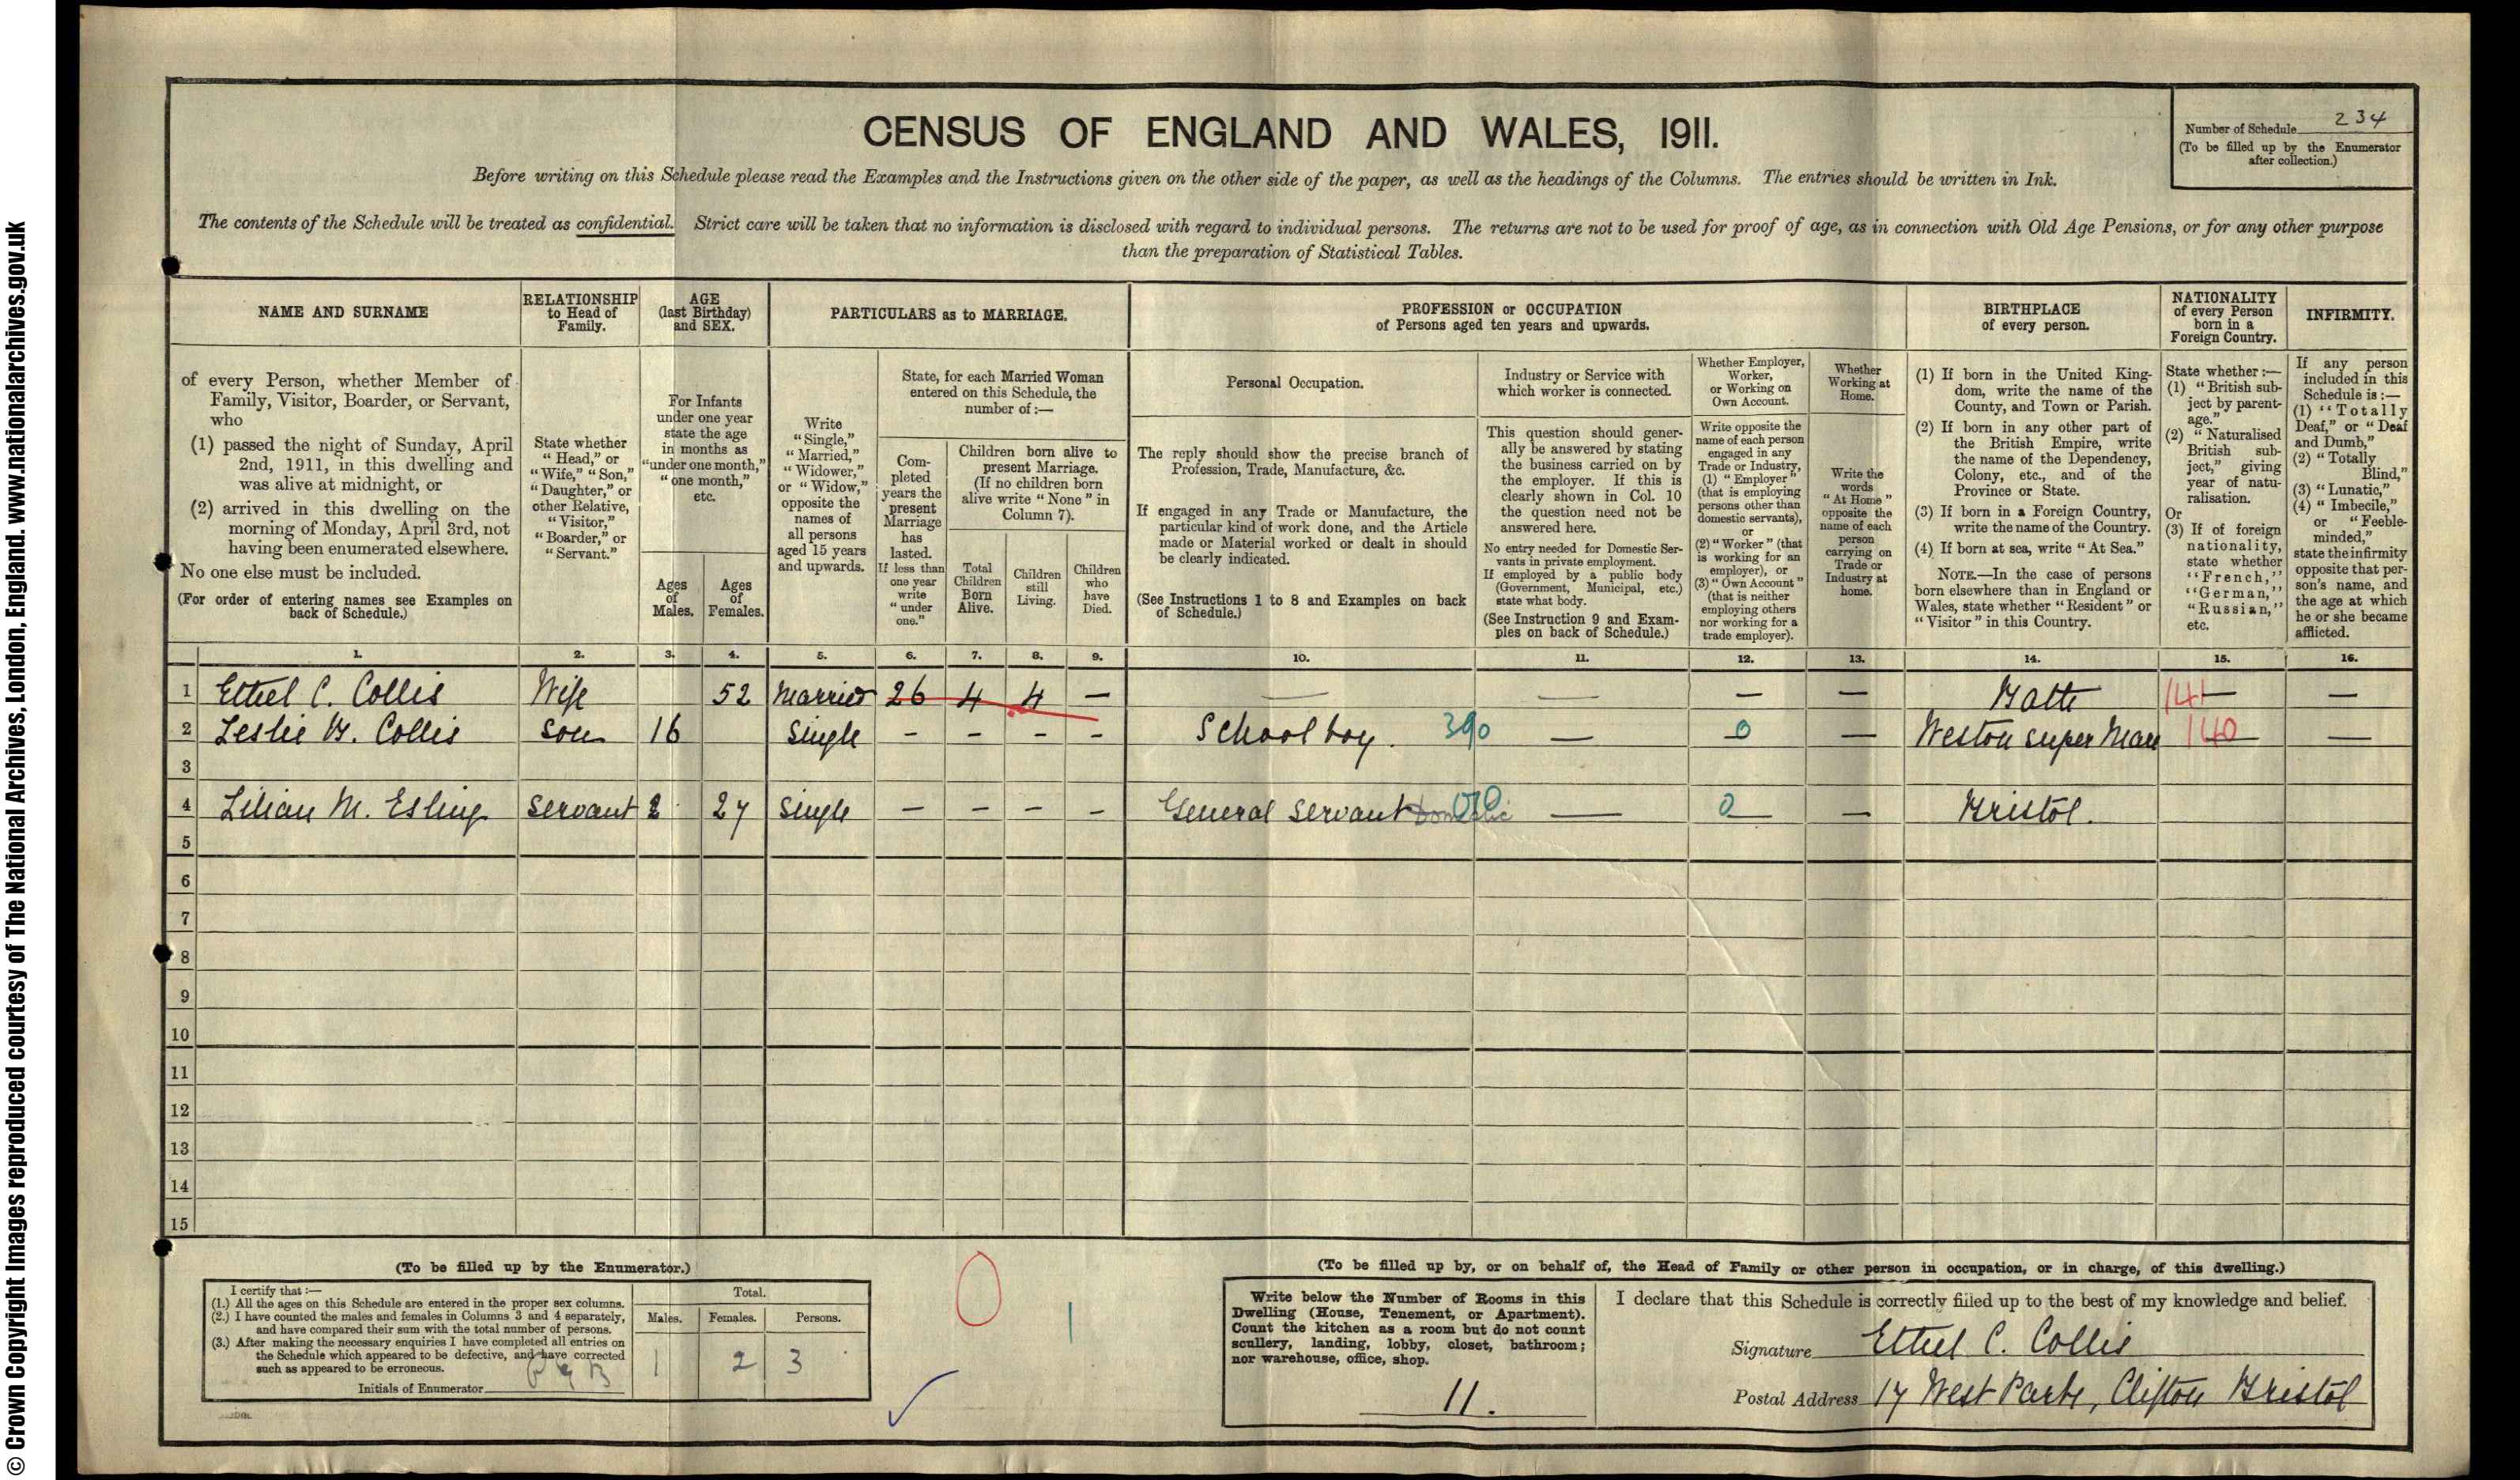 © Crown Copyright Images reproduced courtesy of The National Archives, London, England. www.nationalarchives.gov.uk
CENSUS OF ENGLAND AND WALES, 1911.
Number of Schedule 234
(To be filled up by the Enumerator
after collection.)
Before writing on this Schedule please read the Examples and the Instructions given on the other side of the paper, as well as the headings of the Columns. The entries should be written in Ink.
The contents of the Schedule will be treated as confidential. Strict care will be taken that no information is disclosed with regard to individual persons. The returns are not to be used for proof of age, as in connection with Old Age Pensions, or for any other purpose
than the preparation of Statistical Tables.
NAME AND SURNAME
RELATIONSHIP
to Head of
Family.
AGE
(last Birthday)
and SEX.
PARTICULARS as to MARRIAGE.
PROFESSION or OCCUPATION
of Persons aged ten years and upwards.
BIRTHPLACE
of every person.
NATIONALITY
of every Person
born in a
Foreign Country.
INFIRMITY.
of every Person, whether Member of
Family, Visitor, Boarder, or Servant,
who
(1) passed the night of Sunday, April
2nd, 1911, in this dwelling and
was alive at midnight, or
(2) arrived in this dwelling on the
morning of Monday, April 3rd, not
having been enumerated elsewhere.
No one else must be included.
(For order of entering names see Examples on
back of Schedule.)
State whether
"Head," or
"Wife," "Son,"
"Daughter," or
other Relative,
"Visitor,"
"Boarder," or
"Servant."
For Infants
under one year
state the age
in months as
"under one month,"
"one month,"
etc.
Ages
of
Males.
Ages
of
Females.
Write
"Single,"
"Married,"
"Widower,"
or "Widow,"
opposite the
names of
all persons
aged 15 years
and upwards.
State, for each Married Woman
entered on this Schedule, the
number of :—
Com-
pleted
years the
present
Marriage
has
lasted.
If less than
one year
write
"under
one."
Children born alive to
present Marriage.
(If no children born
alive write "None" in
Column 7).
Total
Children
Born
Alive.
Children
still
Living.
Children
who
have
Died.
Personal Occupation.
The reply should show the precise branch of
Profession, Trade, Manufacture, &c.
If engaged in any Trade or Manufacture, the
particular kind of work done, and the Article
made or Material worked or dealt in should
be clearly indicated.
(See Instructions 1 to 8 and Examples on back
of Schedule.)
Industry or Service with
which worker is connected.
This question should gener-
ally be answered by stating
the business carried on by
the employer. If this is
clearly shown in Col. 10
the question need not be
answered here.
No entry needed for Domestic Ser-
vants in private employment.
If employed by a public body
(Government, Municipal, etc.)
state what body.
(See Instruction 9 and Exam-
ples on back of Schedule.)
Whether Employer,
Worker,
or Working on
Own Account.
Write opposite the
name of each person
engaged in any
Trade or Industry,
(1) "Employer"
(that is employing
persons other than
domestic servants),
or
(2) "Worker" (that
is working for an
employer), or
(3) "Own Account"
(that is neither
employing others
nor working for a
trade employer).
Whether
Working at
Home.
Write the
words
"At Home"
opposite the
name of each
person
carrying on
Trade or
Industry at
home.
(1) If born in the United King-
dom, write the name of the
County, and Town or Parish.
(2) If born in any other part of
the British Empire, write
the name of the Dependency,
Colony, etc., and of the
Province or State.
(3) If born in a Foreign Country,
write the name of the Country.
(4) If born at sea, write "At Sea."
NOTE.—In the case of persons
born elsewhere than in England or
Wales, state whether "Resident" or
"Visitor" in this Country.
State whether :—
(1) "British sub-
ject by parent-
age."
(2) "Naturalised
British sub-
ject," giving
year of natu-
ralisation.
Or
(3) If of foreign
nationality,
state whether
"French,"
"German,"
"Russian,"
etc.
If any person
included in this
Schedule is :—
(1) "Totally
Deaf," or "Deaf
and Dumb,"
(2) "Totally
Blind,"
(3) "Lunatic,"
(4) "Imbecile,"
or "Feeble-
minded,"
state the infirmity
opposite that per-
son's name, and
the age at which
he or she became
afflicted.
1. 2. 3. 4. 5. 6. 7. 8. 9. 10. 11. 12. 13. 14. 15. 16.
1 Ethel C. Collis Wife 52 Married 26 4 4 — — — — — Bath 141 — —
2 Leslie H. Collis Son 16 Single - - - - School boy. 390 — 0 — Weston super Mare 140 — —
3
4 Lilian M. Esling Servant 27 Single — - - - General Servant Domestic — 0 — Bristol.
5
6
7
8
9
10
11
12
13
14
15
(To be filled up by the Enumerator.)
I certify that :—
(1.) All the ages on this Schedule are entered in the proper sex columns.
(2.) I have counted the males and females in Columns 3 and 4 separately,
and have compared their sum with the total number of persons.
(3.) After making the necessary enquiries I have completed all entries on
the Schedule which appeared to be defective, and have corrected
such as appeared to be erroneous.
Initials of Enumerator
Total.
Males. Females. Persons.
1 2 3
0
1
(To be filled up by, or on behalf of, the Head of Family or other person in occupation, or in charge, of this dwelling.)
Write below the Number of Rooms in this
Dwelling (House, Tenement, or Apartment).
Count the kitchen as a room but do not count
scullery, landing, lobby, closet, bathroom;
nor warehouse, office, shop.
11.
I declare that this Schedule is correctly filled up to the best of my knowledge and belief.
Signature Ethel C. Collis
Postal Address 17 West Park, Clifton Bristol